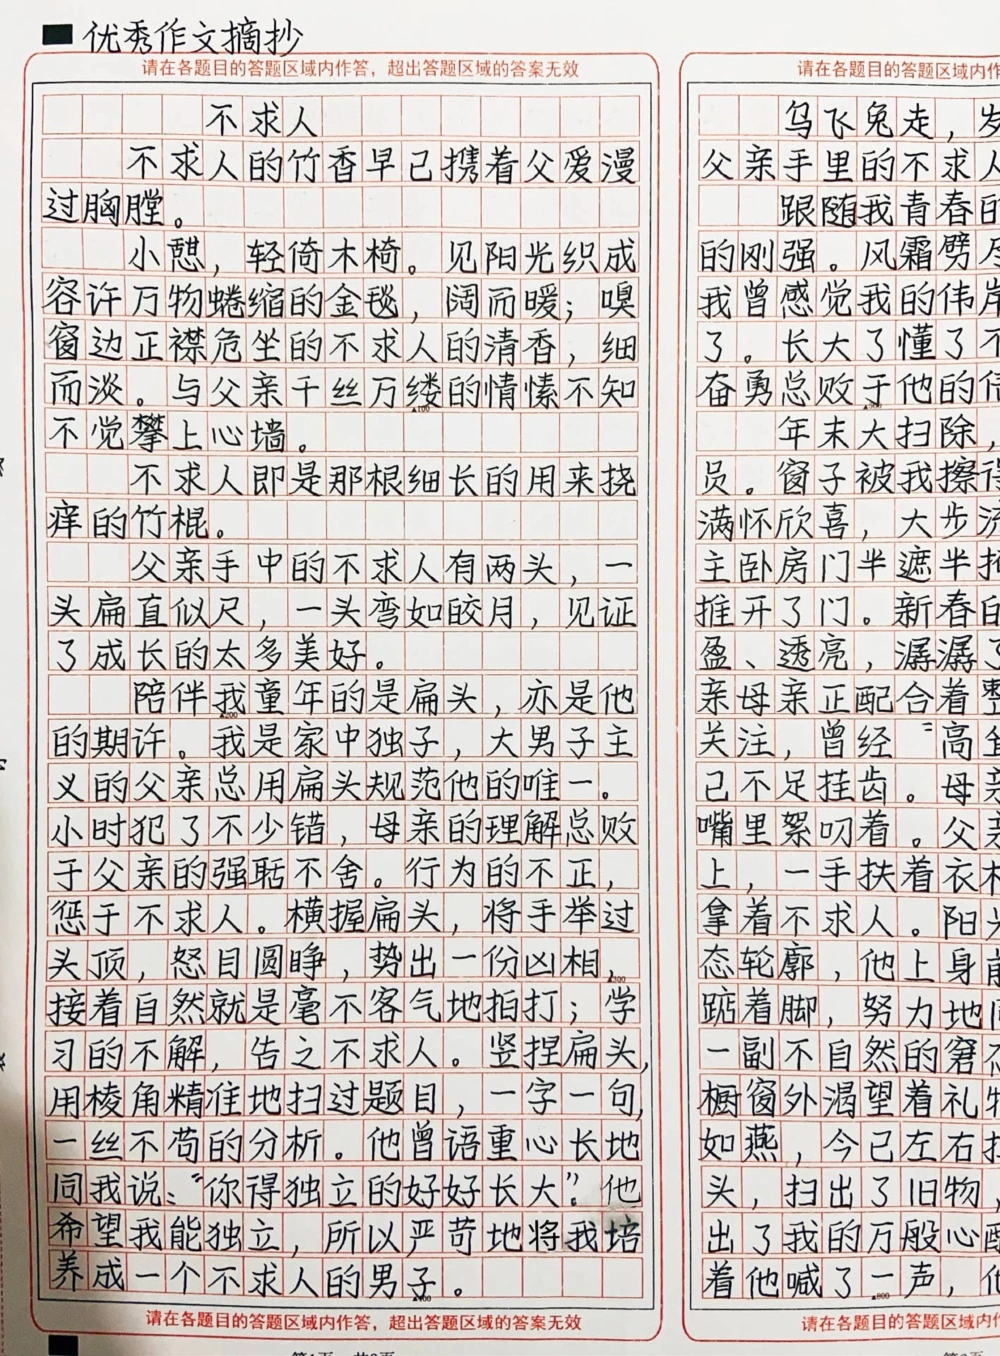 优秀作文摘抄
请在各题目的答题区域内作答，超出答题区域的答案无效
不求人
不求人的竹香早已携着父爱漫
过胸膛。
小憩，轻倚木椅。见阳光织成
容许万物蜷缩的金毯，阔而暖；嗅
窗边正襟危坐的不求人的清香，细
而淡。与父亲千丝万缕的情愫不知
不觉攀上心墙。
不求人即是那根细长的用来挠
痒的竹棍。
父亲手中的不求人有两头，一
头扁直似尺，一头弯如皎月，见证
了成长的太多美好。
陪伴我童年的是扁头，亦是他
的期许。我是家中独子，大男子主
义的父亲总用扁头规范他的唯一。
小时犯了不少错，母亲的理解总败
于父亲的强聒不舍。行为的不正，
惩于不求人。横握扁头，将手举过
头顶，怒目圆睁，势出一份凶相，
接着自然就是毫不客气地拍打；学
习的不解，告之不求人。竖捏扁头，
用棱角精准地扫过题目，一字一句，
一丝不苟的分析。他曾语重心长地
同我说：“你得独立的好好长大”。他
希望我能独立，所以严苛地将我培
养成一个不求人的男子。
请在各题目的答题区域内作答，超出答题区域的答案无效
请在各题目的答题区域内作
乌飞兔走，岁
父亲手里的不求人
跟随我青春的
的刚强。风霜劈尽
我曾感觉我的伟岸
了。长大了懂了不
奋勇总败于他的倔
年末大扫除，
员。窗子被我擦得
满怀欣喜，大步流
主卧房门半遮半掩
推开了门。新春的
盈、透亮，潺潺了
亲母亲正配合着整
关注，曾经“高金
已不足挂齿。母亲
嘴里絮叨着。父亲
上，一手扶着衣柜
拿着不求人。阳光
态轮廓，他上身前
踮着脚，努力地向
一副不自然的窘态
橱窗外渴望着礼物
如燕，今已左右
头，扫出了旧物，
出了我的万般心酸
着他喊了一声，他
请在各题目的答题区域内作